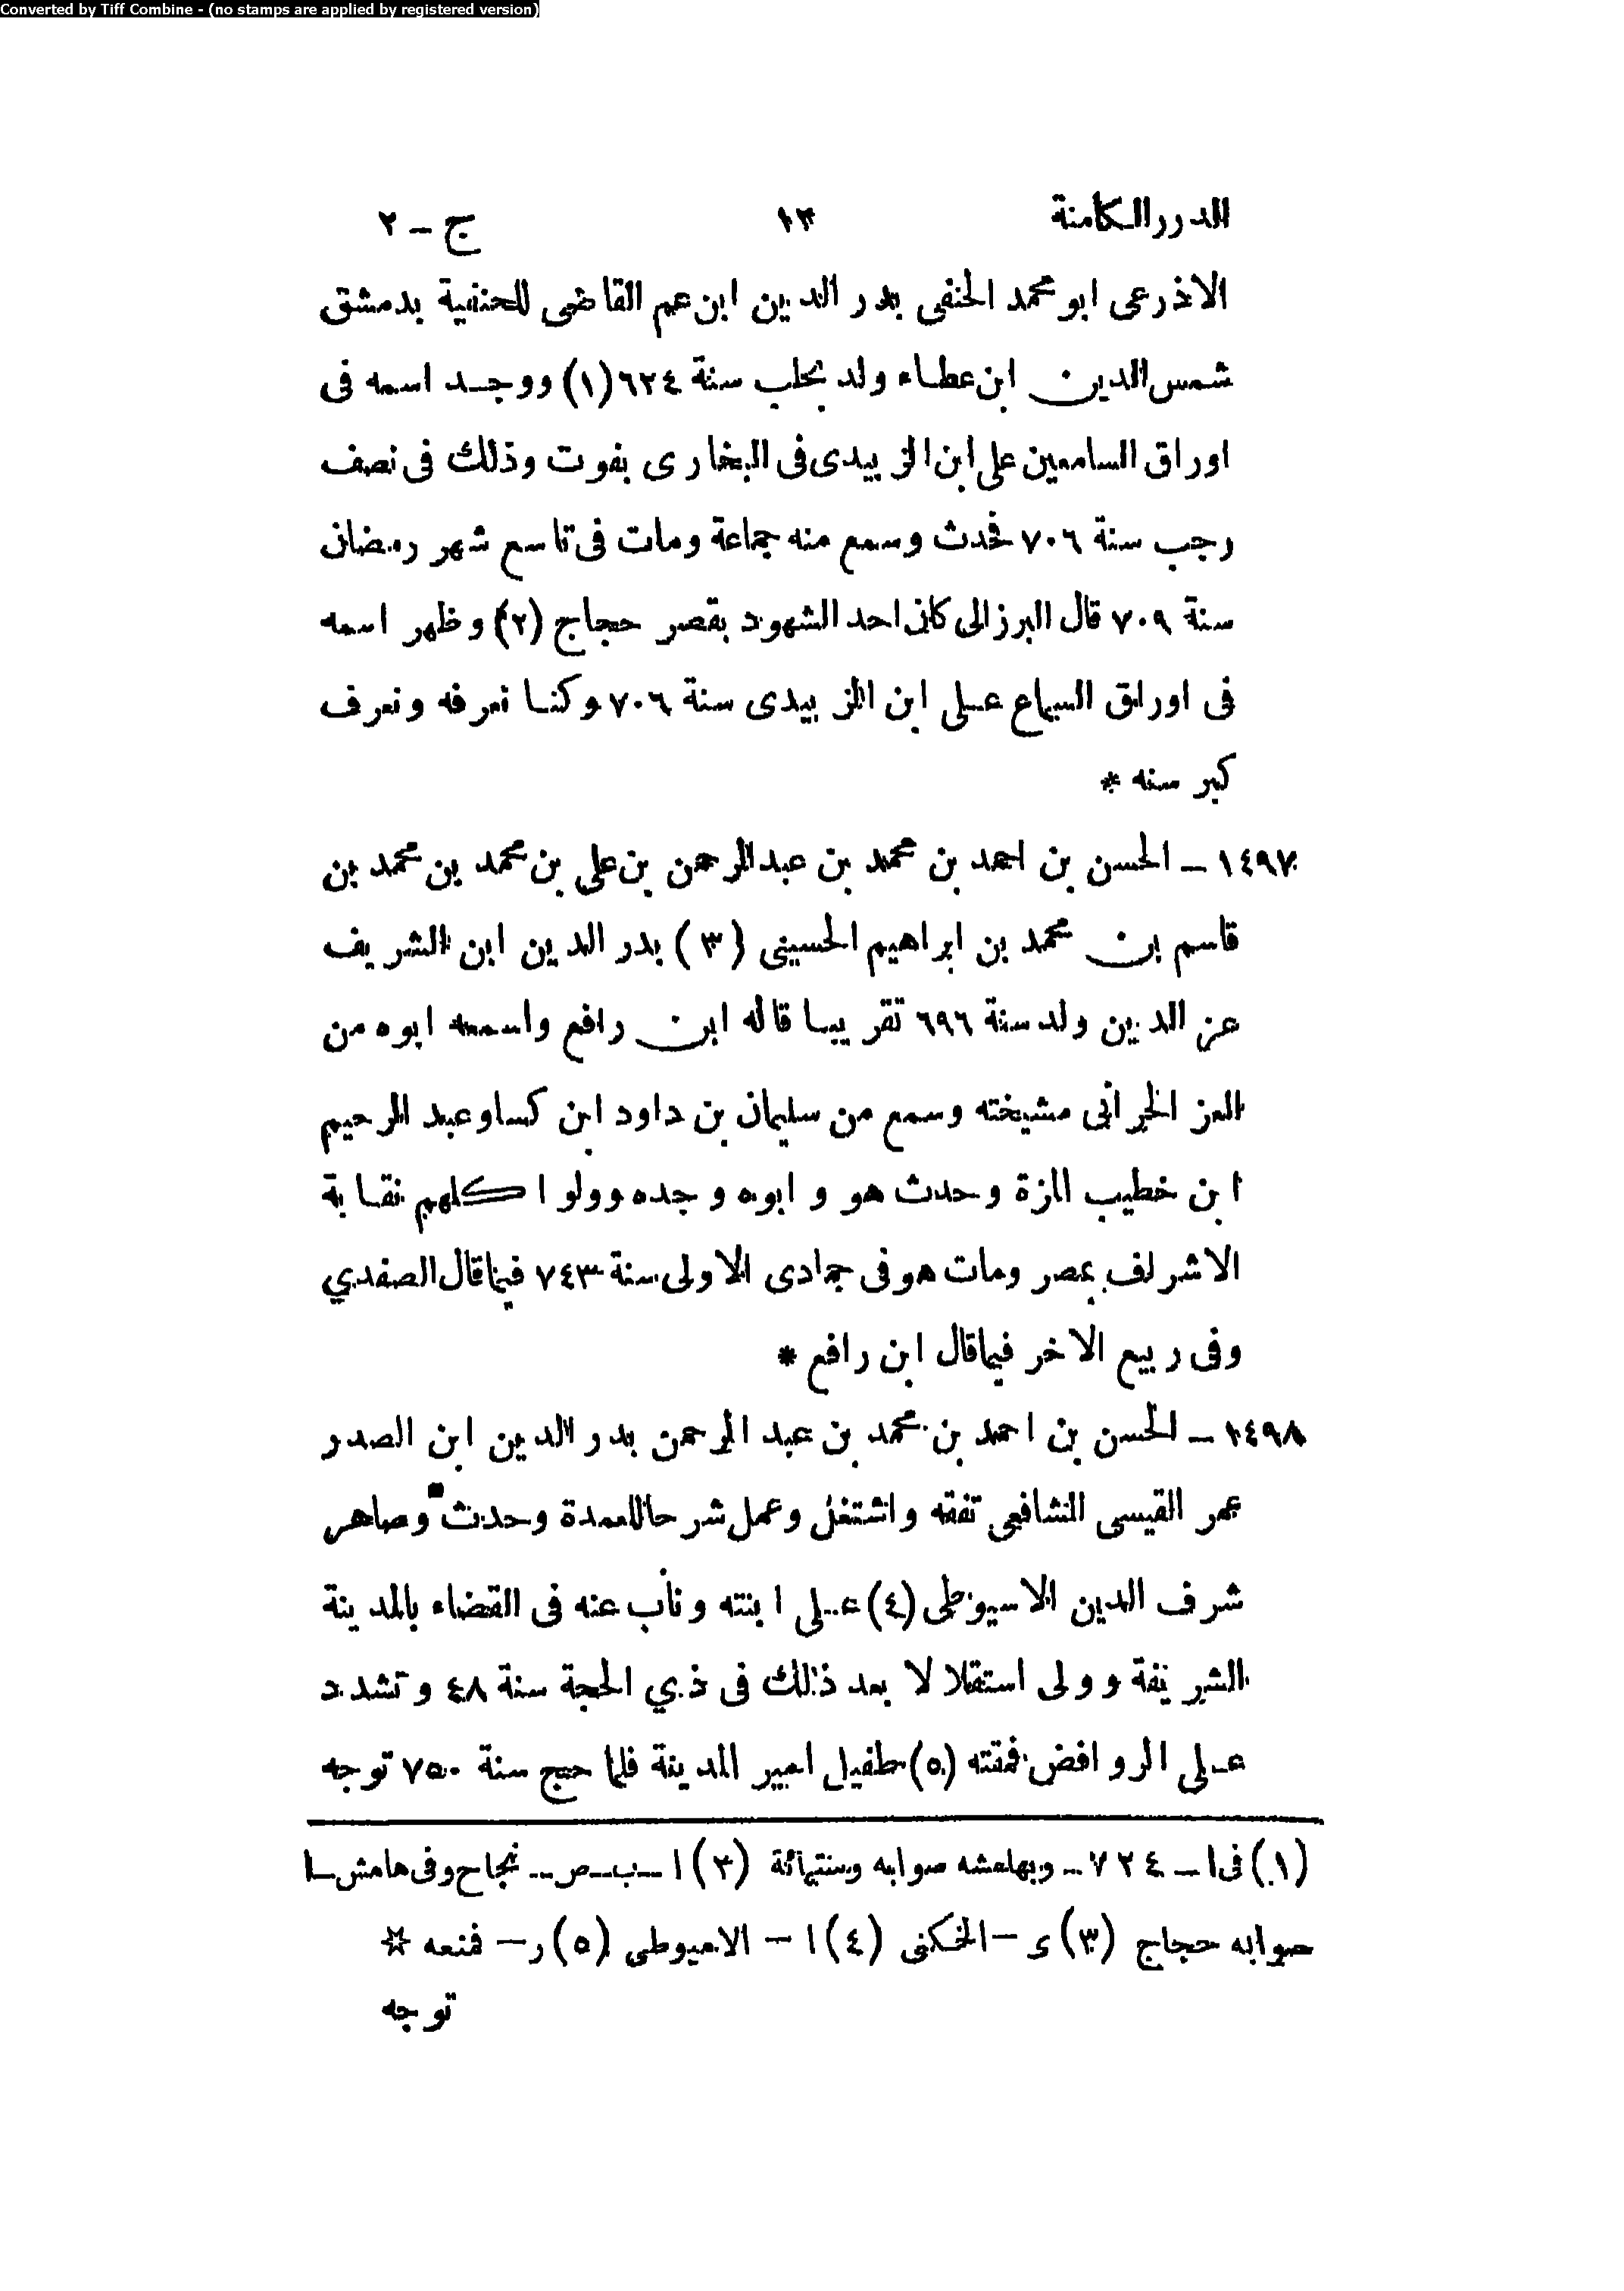 Converted by Tiff Combine - (no stamps are applied by registered version)
الدرر الكامنة ١٣ ج – ٢
الاذرعى ابو محمد الحنفى بدر الدين ابن عم القاضى للحنفية بدمشق
شمس الدين ابن عطاء ولد بحلب سنة ٦٢٤ (١) ووجد اسمه فى
اوراق السامعين على ابن الزبيدى فى البخارى بفوت وذلك فى نصف
رجب سنة ٧٠٦ فحدث وسمع منه جماعة ومات فى تاسع شهر رمضان
سنة ٧٠٩ قال البرزالى كان احد الشهود بقصر حجاج (٢) وظهر اسمه
فى اوراق السماع على ابن الزبيدى سنة ٧٠٦ وكنا نعرفه ونعرف
كبر سنه *
١٤٩٧ – الحسن بن احمد بن محمد بن عبد الرحمن بن على بن محمد بن محمد بن
قاسم بن محمد بن ابراهيم الحسينى (٣) بدر الدين ابن الشريف
عز الدين ولد سنة ٦٩٦ تقريبا قاله ابن رافع واسمعه ابوه من
العز الحرانى مشيخته وسمع من سليمان بن داود ابن كسا وعبد الرحيم
ابن خطيب المزة وحدث هو وابوه وجده وولوا كلهم نقابة
الاشراف بمصر ومات هو فى جمادى الاولى سنة ٧٤٣ فيما قال الصفدي
وفى ربيع الاخر فيما قال ابن رافع *
١٤٩٨ – الحسن بن احمد بن محمد بن عبد الرحمن بدر الدين ابن الصدر
عمر القيسى الشافعى تفقه واشتغل وعمل شرحا للعمدة وحدث وصاهر
شرف الدين الاسيوطى (٤) على ابنته وناب عنه فى القضاء بالمدينة
الشريفة وولى استقلالا بعد ذلك فى ذي الحجة سنة ٤٨ وتشدد
على الروافض فمقته (٥) طفيل امير المدينة فلما حج سنة ٧٥٠ توجه
(١) فى ا – ٧٢٤ – وبهامشه صوابه وستمائة (٢) ا – ب – ص – نجاح وفى هامش – ا
صوابه حجاج (٣) ى – الحكنى (٤) ا – الاميوطى (٥) ر – فمنعه ☆
توجه